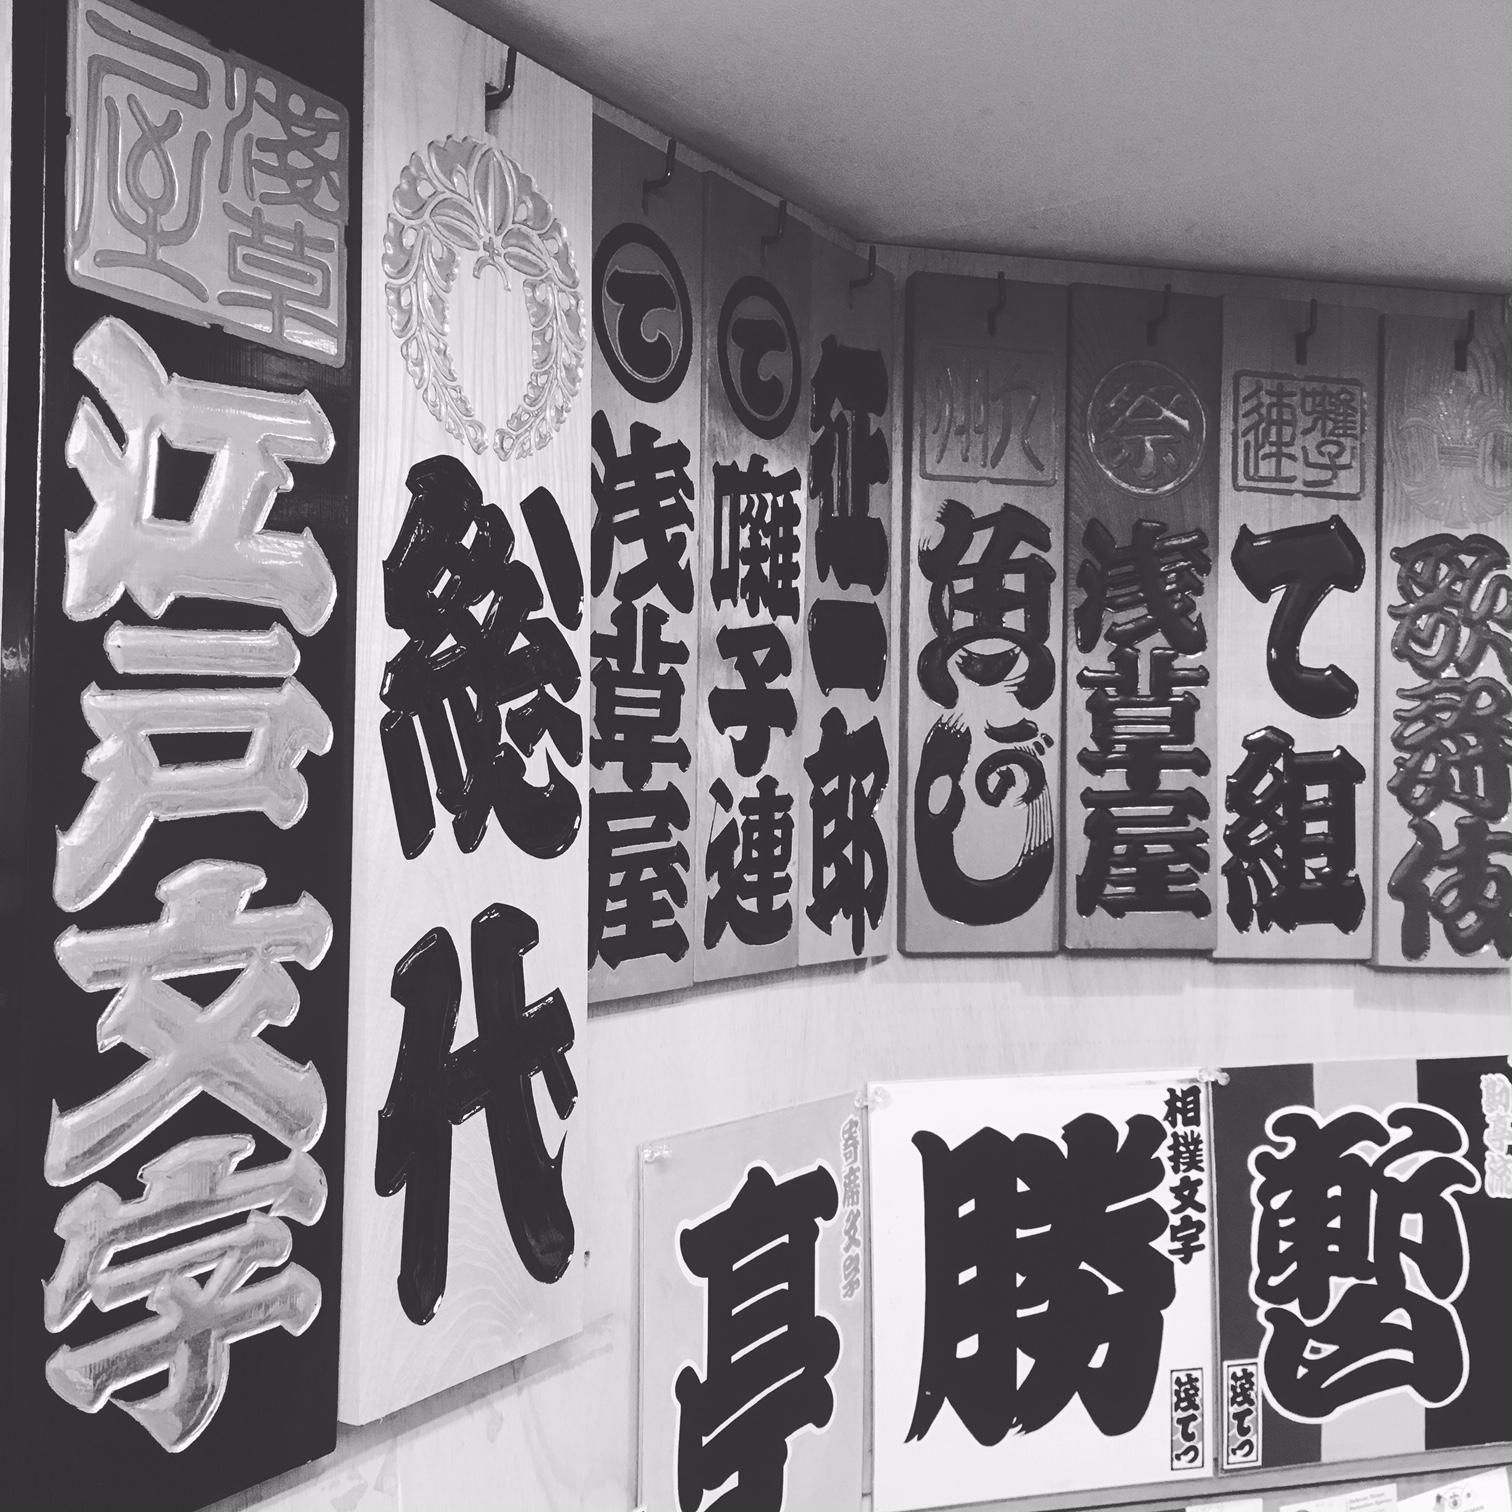 浅草屋
江戸文字
総代
て
浅草屋
て
囃子連
征一郎
九州
魚がのし
祭
浅草屋
囃子連
て組
歌舞伎
寄席文字
亭
相撲文字
勝
浅てつ
勘亭流
暫
浅てつ